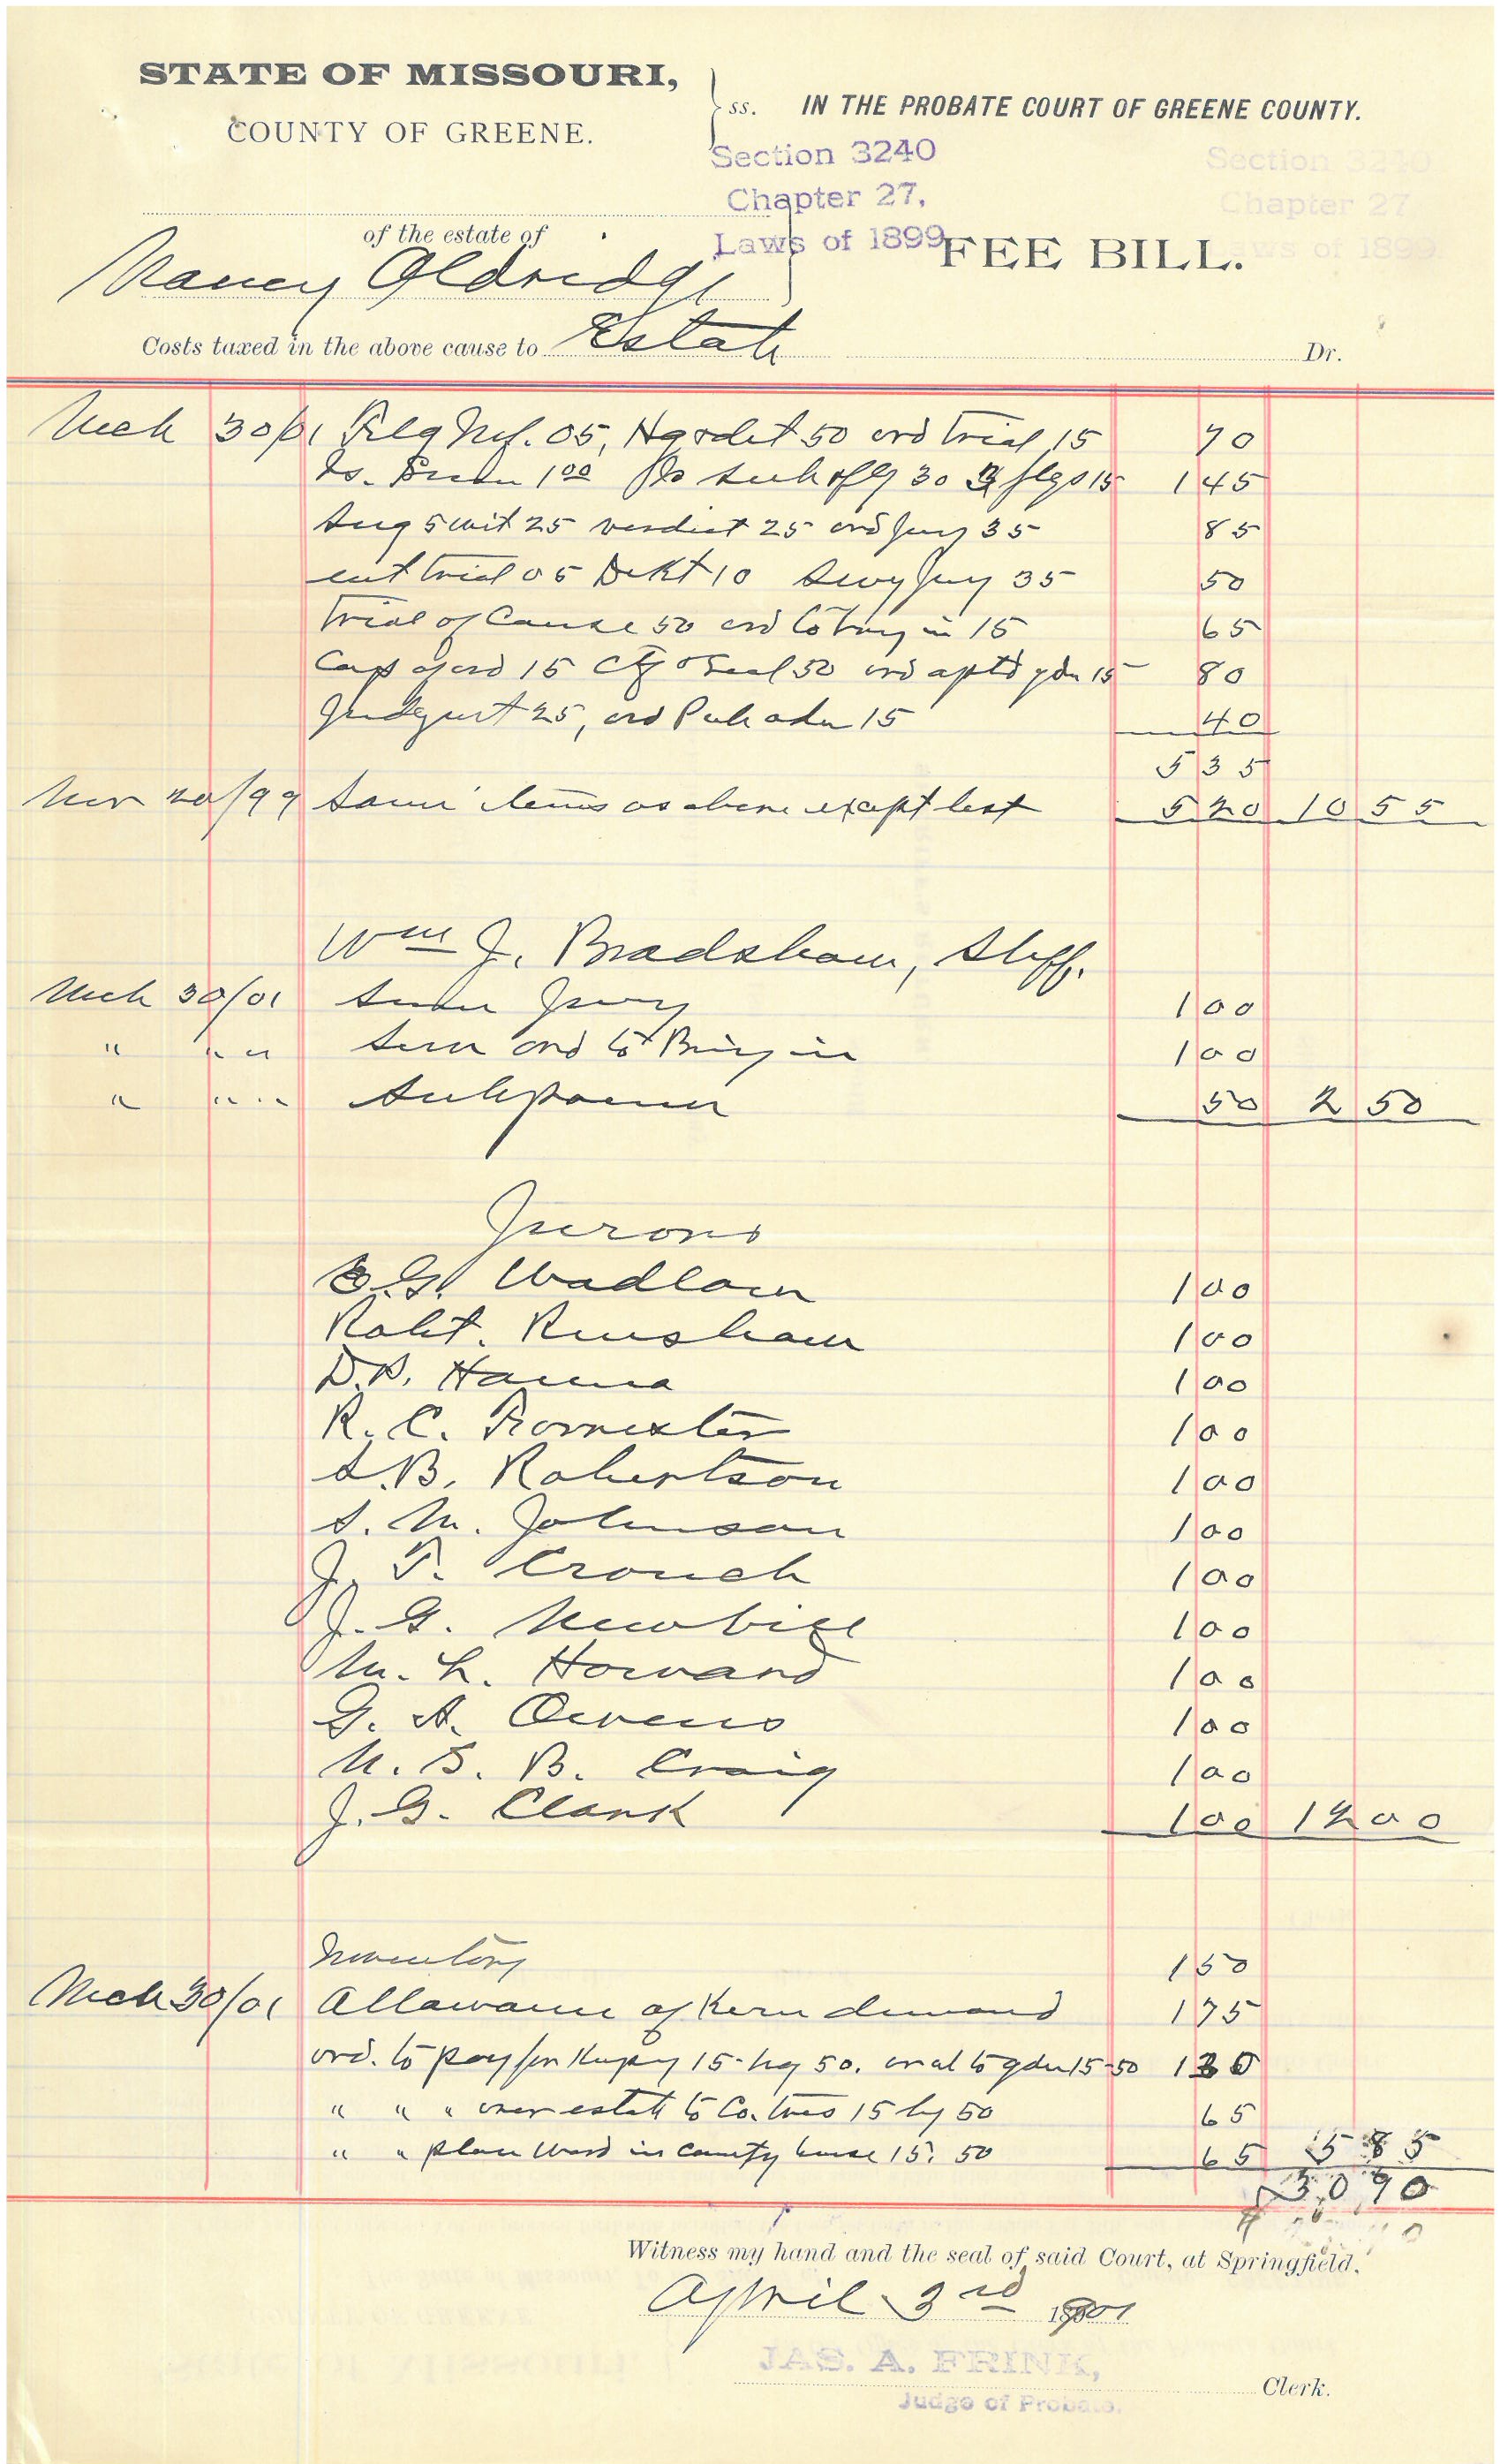 STATE OF MISSOURI,
COUNTY OF GREENE.
ss. IN THE PROBATE COURT OF GREENE COUNTY.
Section 3240
Chapter 27,
Laws of 1899
Section 3240
Chapter 27
Laws of 1899
of the estate of
FEE BILL.
Nancy Aldridge
Costs taxed in the above cause to Estate Dr.
Mch 30/01 Flg Inf. 05, Hg & det 50 ord trial 15 70
Is. 1 00 30 3 flgs 15 1 45
5 wit 25 verdict 25 ord jury 35 85
ent trial 05 Dckt 10 Swg Jury 35 50
Trial of Cause 50 ord to bring in 15 65
Copy of ord 15 Ctf & Seal 50 ord aptd gdn 15 80
Judgmt 25, ord Pub adm 15 40
5 35
Nov 20/99 Same items as above except last 5 20 10 55
Wm J. Bradshaw, Shff.
Mch 30/01 Sumn Jury 1 00
" " " Serv ord to Bring in 1 00
" " " " Subpoena 50 2 50
Jurors
E.G. Wadlow 1 00
Robt. Renshaw 1 00
D.P. Hanna 1 00
R. C. Forrester 1 00
S.B. Robertson 1 00
S. M. Johnson 1 00
J. T. Crouch 1 00
J. G. Newbill 1 00
M. L. Howard 1 00
G. A. Owens 1 00
N. S. B. Craig 1 00
J. G. Clark 1 00 12 00
Inventory 1 50
Mch 30/01 Allowance of Kern demand 1 75
ord. to pay for Kuping 15 hg 50. to gdn 15-50 1 30
" " " over estate to Co. tres 15 hg 50 65
" " place ward in county house 15. 50 65 5 85
30 90
Witness my hand and the seal of said Court, at Springfield,
April 3rd 1901
JAS. A. FRINK,
Clerk.
Judge of Probate.